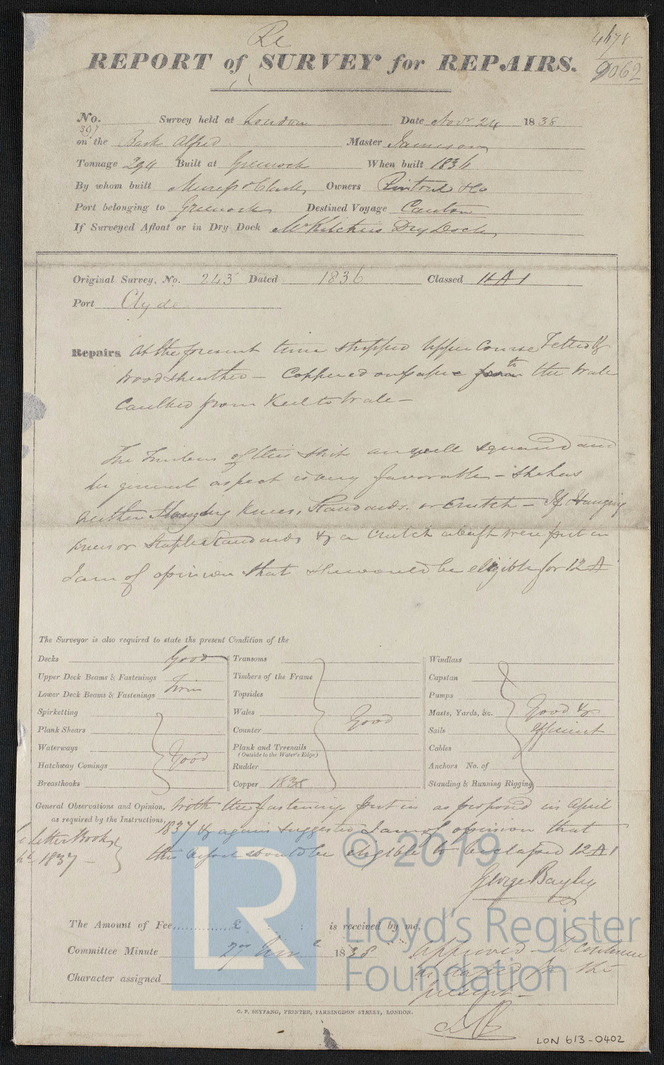 Re
REPORT of SURVEY for REPAIRS.
No. 397 Survey held at London Date Novr 24 1838
on the Bark Alfred Master Jameson
Tonnage 294 Built at Greenock When built 1836
By whom built Owners & Co
Port belonging to Greenock Destined Voyage Canton
If Surveyed Afloat or in Dry Dock Dry Dock
Original Survey, No. 243 Dated 1836 Classed 11 A 1
Port Clyde
Repairs At the present time stripped Upper Course Felted &
Wood sheathed – Coppered on paper the Wale
Caulked from Keel to Wale –
The Timbers of this Ship are well squared and
her general aspect is very favorable – She has
neither Hanging Knees, Standards, or Crutch – If Hanging
Knees or Staple Standards & a Crutch abaft were put in
I am of opinion that she would be eligible for 12 A
The Surveyor is also required to state the present Condition of the
Decks Good
Upper Deck Beams & Fastenings Firm
Lower Deck Beams & Fastenings
Spirketting
Plank Shears
Waterways Good
Hatchway Comings
Breasthooks
Transoms
Timbers of the Frame
Topsides
Wales Good
Counter
Plank and Treenails
(Outside to the Water's Edge)
Rudder
Copper 1838
Windlass
Capstan
Pumps
Masts, Yards, &c. Good &
Sails efficient
Cables
Anchors No. of
Standing & Running Rigging
General Observations and Opinion, With the fastenings put in as proposed in April
as required by the Instructions, 1837 & again suggested I am of opinion that
Letter Book 1837 – this Ship would be eligible to be classed 12 A 1
George Bayley
The Amount of Fee £ : : is received by me,
Committee Minute 27 Novr 1838 Approved to continue
Character assigned as she is for the
present –
G. F. SEYFANG, PRINTER, FARRINGDON STREET, LONDON.
LON 613-0402
© 2019
LR
Lloyd's Register
Foundation